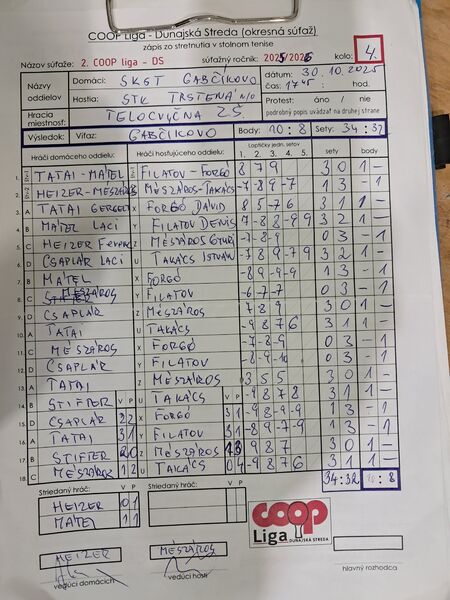 COOP Liga - Dunajská Streda (okresná súťaž)
zápis zo stretnutia v stolnom tenise
Názov súťaže: 2. COOP liga - DS súťažný ročník: 2025/2026 kolo: 4.
Názvy oddielov Domáci: SKST GABČÍKOVO dátum: 30.10.2025
Hostia: STK TRSTENÁ n/o čas: 17 45 hod.
Hracia miestnosť: TELOCVIČŇA ZŠ Protest: áno / nie
podrobný popis uvádzať na druhej strane
Výsledok: Víťaz: GABČÍKOVO Body: 10 : 8 Sety: 34 : 32
Hráči domáceho oddielu: Hráči hosťujúceho oddielu: Loptičky jedn. setov 1. 2. 3. 4. 5. sety body
1. TATAI - MÁTEL FILATOV - FORGÓ 8 7 9 3 0 1 -
2. HEIZER - MESZÁROS MÉSZÁROS - TAKÁCS -7 -8 9 -7 1 3 - 1
3. A TATAI GERGELY X FORGÓ DÁVID 8 5 -7 6 3 1 1 -
4. B MÁTEL LACI Y FILATOV DENIS 3 2 1 -
5. C HEIZER Z MÉSZÁROS -7 -8 -9 0 3 - 1
6. D CSAPLÁR LACI U TAKÁCS ISTVÁN 3 2 1 -
7. B MÁTEL X FORGÓ 1 3 - 1
8. MÉSZÁROS Y FILATOV -6 -7 -7 0 3 - 1
9. D CSAPLÁR Z MÉSZÁROS 7 8 9 3 0 1 -
10. A TATAI U TAKÁCS -9 8 7 6 3 1 1 -
11. C MÉSZÁROS X FORGÓ -7 -8 -9 0 3 - 1
12. D CSAPLÁR Y FILATOV -8 -9 -10 0 3 - 1
13. A TATAI Z MÉSZÁROS 3 5 5 3 0 1 -
14. B STIFTER V P U TAKÁCS V P -9 8 7 8 3 1 1 -
15. D CSAPLÁR 2 2 X FORGÓ 3 1 1 3 - 1
16. A TATAI 3 1 Y FILATOV 3 1 1 3 - 1
17. B STIFTER 2 0 Z MÉSZÁROS 1 3 9 8 7 3 0 1 -
18. C MÉSZÁROS 1 2 U TAKÁCS 0 4 -9 8 7 6 3 1 1 -
34:32 10 : 8
Striedaný hráč: V P Striedaný hráč: V P
HEIZER 0 1
MÁTEL 1 1
COOP
Liga
DUNAJSKÁ STREDA
HEIZER MÉSZÁROS
vedúci domácich vedúci hostí hlavný rozhodca